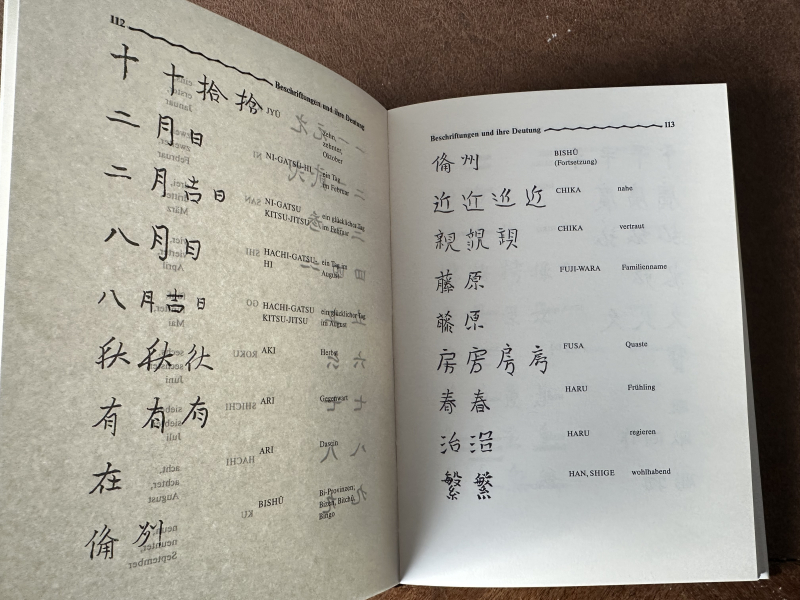 112
Beschriftungen und ihre Deutung
十 十 拾 拾 JYŪ zehn, zehnter, Oktober
二月日 NI-GATSU-HI ein Tag im Februar
二月吉日 NI-GATSU KITSU-JITSU ein glücklicher Tag im Februar
八月日 HACHI-GATSU-HI ein Tag im August
八月吉日 HACHI-GATSU KITSU-JITSU ein glücklicher Tag im August
秋 秋 AKI Herbst
有 有 有 ARI Gegenwart
在 ARI Dasein
備州 BISHŪ Bi-Provinzen; Bizen, Bitchū, Bingo
Beschriftungen und ihre Deutung 113
備州 BISHŪ (Fortsetzung)
近 近 近 CHIKA nahe
親 親 親 CHIKA vertraut
藤原 FUJI-WARA Familienname
藤原
房 房 房 房 FUSA Quaste
春 春 HARU Frühling
治 治 HARU regieren
繁 繁 HAN, SHIGE wohlhabend